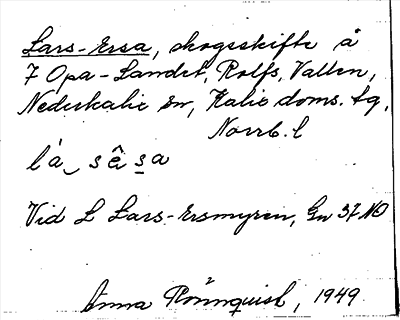 Lars-Ersa, skogsskifte å
7 Opa-Landet, Rolfs, Vallen,
Nederkalix sn, Kalix doms. tg,
Norrb. l
Vid L Lars-Ersmyren, Gn 37 NO
Anna Rönnquist, 1949